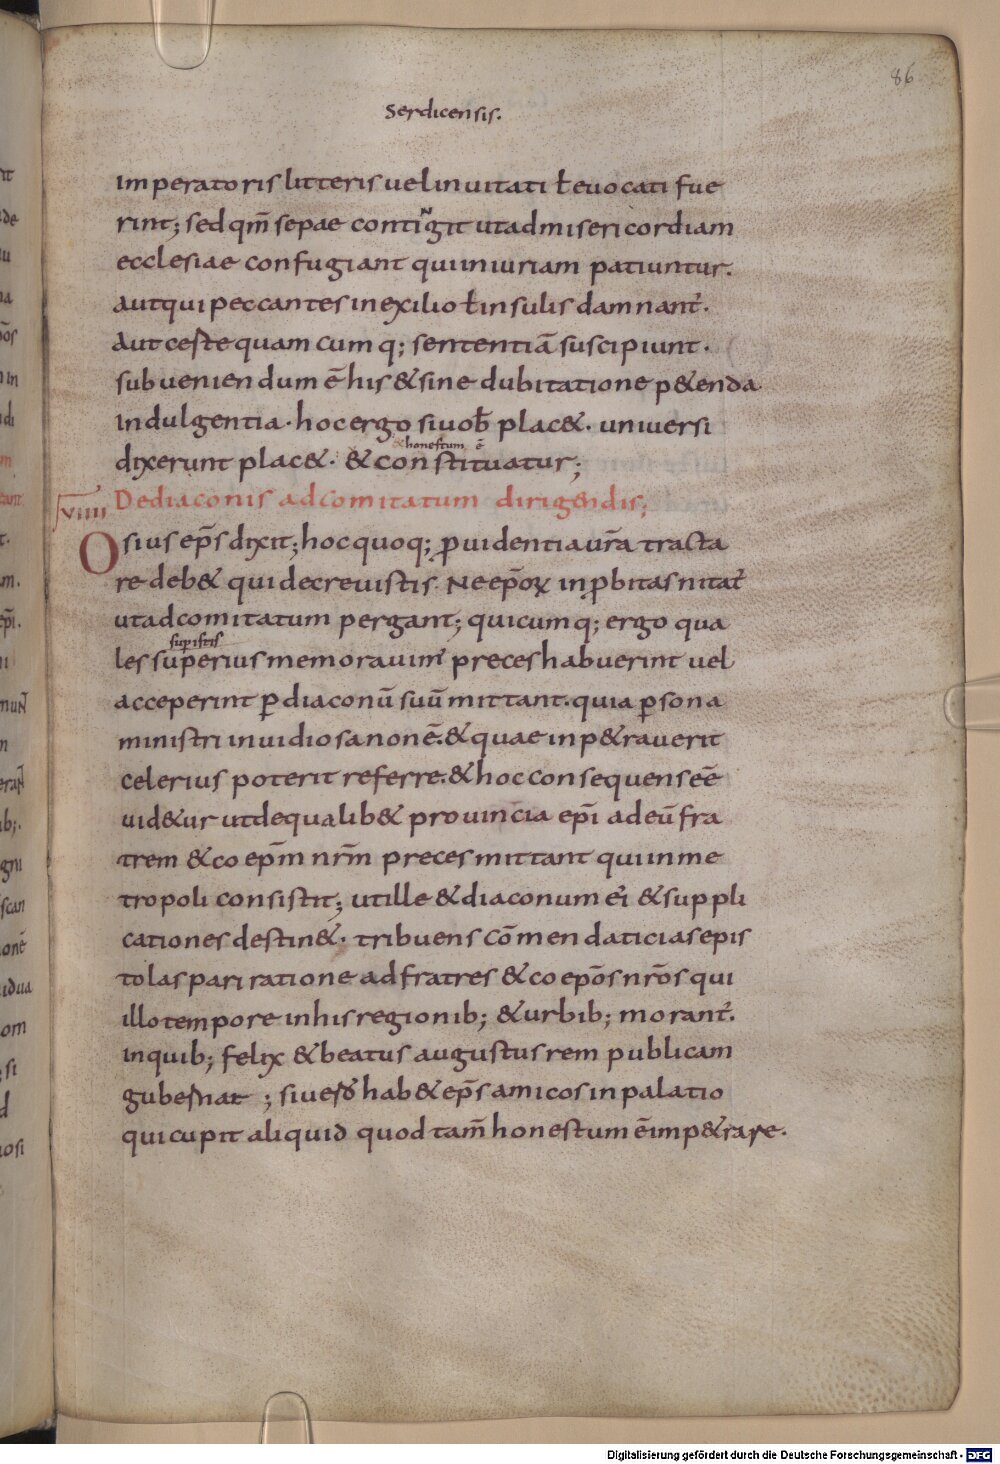 86
Serdicensis.
imperatoris litteris uel inuitati ł euocati fue
rint; sed qm̄ sepae contiNgit ut ad misericordiam
ecclesiae confugiant qui iniuriam patiuntur.
aut qui peccantes in exilio ł insulis damnant̄.
aut ceste quamcumq; sententiā suscipiunt.
subueniendum ē his & sine dubitatione p&enda
indulgentia. hoc ergo si uob̄ plac&. uniuersi
honestum ē
dixerunt plac&. & constituatur;
VIIII De diaconis ad comitatum dirigendis;
Osius ep̄s dixit; hoc quoq; ꝓuidentia ur̄a tracta
re deb& qui decreuistis. Ne ep̄oꝝ inꝓbitas nitat̄
ut ad comitatum pergant; quicumq; ergo qua
supistis
les superius memorauim' preces habuerint uel
acceperint ꝑ diaconū suū mittant. quia ꝑsona
ministri inuidiosa non ē. & quae inp&rauerit
celerius poterit referre. & hoc consequens eē
uid&ur ut de qualib& prouincia epī ad eū fra
trem & coep̄m nr̄m preces mittant qui in me
tropoli consistit; ut ille & diaconum ei' & suppli
cationes destin&. tribuens cōmendaticias epis
tolas pari ratione ad fratres & coep̄os nr̄os qui
illo tempore in his regionib; & urbib; morant̄.
in quib; felix & beatus augustus rem publicam
gubernat ; si uero hab& ep̄s amicos in palatio
qui cupit aliquid quod tam̄ honestum ē imp&rare.
Digitalisierung gefördert durch die Deutsche Forschungsgemeinschaft - DFG